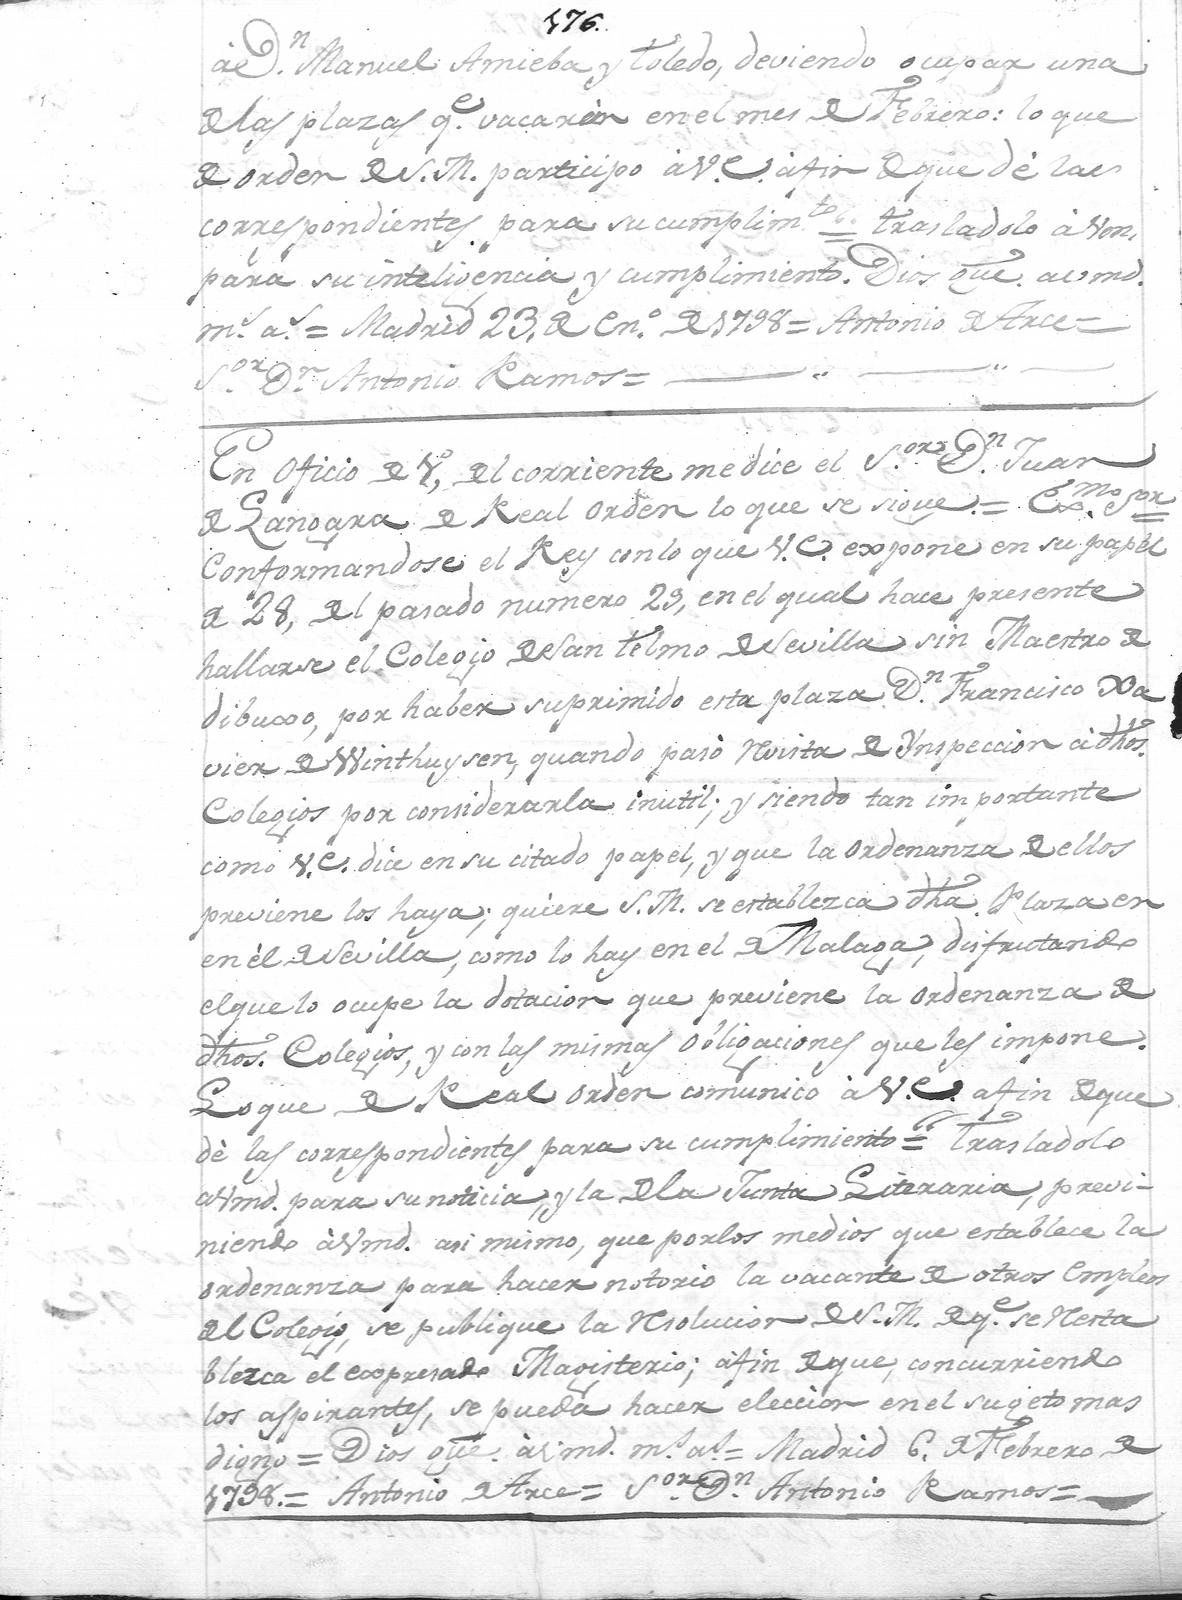 176.
à D.n Manuel Amieba y Toledo, deviendo ocupar una
de las plazas q.e vacarán en el mes de Febrero: lo que
de orden de S. M. participo à V. E. àfin de que dè las
correspondientes para su cumplim.to = trasladolo à Vm.
para su inteligencia y cumplimiento. Dios gue. a vmd.
m.s a.s = Madrid 23, de En.o de 1798 = Antonio de Arce =
S.or D.n Antonio Ramos =
En Oficio de 1.o, del corriente me dice el S.or D.n Juan
de Langara de Real Orden lo que se sigue. = Ex.mo S.or =
Conformandose el Rey con lo que V. E. expone en su papel
de 28, del pasado numero 29, en el qual hace presente
hallarse el Colegio de San Telmo de Sevilla sin Maestro de
dibuxo, por haber suprimido esta plaza D.n Francisco Xa
vier de Winthuysen, quando pasò Revista de Ynspeccion à dhos.
Colegios por considerarla inutil; y siendo tan importante
como V. E. dice en su citado papel, y que la Ordenanza de ellos
previene los haya; quiere S. M. se establezca dha. Plaza en
en èl de Sevilla, como lo hay en el de Malaga, disfrutando
el que lo ocupe la dotacion que previene la Ordenanza de
dhos. Colegios, y con las mismas obligaciones que les impone.
Lo que de Real Orden comunico à V. E. afin de que
dè las correspondientes para su cumplimiento = trasladolo
a Vmd. para su noticia, y la de la Junta Literaria, previ-
niendo à Vmd. asi mismo, que por los medios que establece la
ordenanza para hacer notorio la vacante de otros Empleos
del Colegio, se publique la Resolucion de S. M. de q.e se Resta
blezca el expresado Magisterio; àfin de que, concurriendo
los aspirantes, se pueda hacer eleccion en el sugeto mas
digno = Dios gue. à Vmd. m.s a.s = Madrid 6. de Febrero de
1798. = Antonio de Arce = S.or D.n Antonio Ramos =